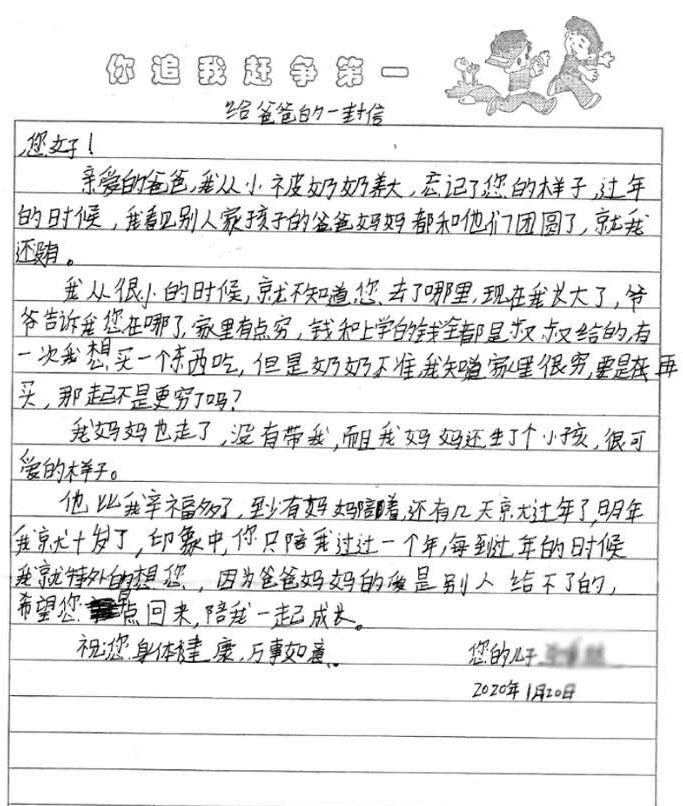 你追我赶争第一
给爸爸的一封信
您好！
亲爱的爸爸，我从小被奶奶养大，忘记了您的样子，过年
的时候，我看见别人家孩子的爸爸妈妈都和他们团圆了，就我
还没有。
我从很小的时候，就不知道您去了哪里，现在我长大了，爷
爷告诉我您在哪了，家里有点穷，钱和上学的钱全都是叔叔给的，有
一次我想买一个东西吃，但是奶奶不准，我知道家里很穷，要是在再
买，那起不是更穷了吗？
我妈妈也走了，没有带我，而且我妈妈还生了个小孩，很可
爱的样子。
他比我幸福多了，至少有妈妈陪着，还有几天就大过年了，明年
我就十岁了，印象中，你只陪我过过一个年，每到过年的时候
我就特外的想您，因为爸爸妈妈的爱是别人给不了的，
希望您早点回来，陪我一起成长。
祝您身体健康，万事如意。
您的儿子
2020年1月20日